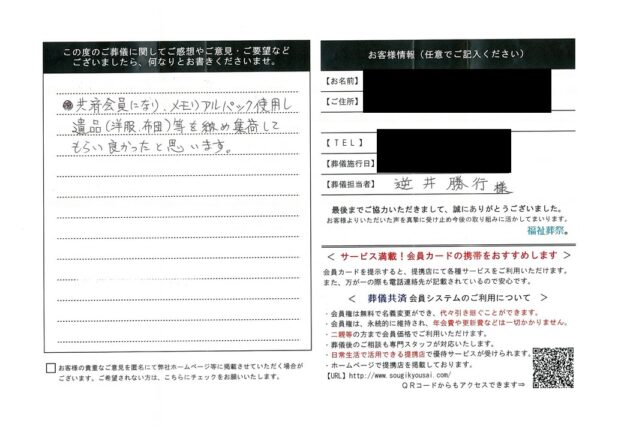 この度のご葬儀に関してご感想やご意見・ご要望など
ございましたら、何なりとお書きくださいませ。
共済会員になり、メモリアルパック使用し
遺品(洋服、布団)等を纏め集荷して
もらい良かったと思います。
お客様の貴重なご意見を匿名にて弊社ホームページ等に掲載させていただく場合が
ございます。ご希望されない方は、こちらにチェックをお願いいたします。
お客様情報（任意でご記入ください）
【お名前】
【ご住所】
【ＴＥＬ】
【葬儀施行日】
【葬儀担当者】 逆井勝行様
最後までご協力いただきまして、誠にありがとうございました。
お客様よりいただいた声を真摯に受け止め今後の取り組みに活かしてまいります。
福祉葬祭。
＜ サービス満載！会員カードの携帯をおすすめします ＞
会員カードを提示すると、提携店にて各種サービスをご利用いただけます。
また、万が一の際も電話連絡先が記載されているので安心です。
＜ 葬儀共済 会員システムのご利用について ＞
・会員権は無料で名義変更ができ、代々引き継ぐことができます。
・会員権は、永続的に維持され、年会費や更新費などは一切かかりません。
・二親等の方まで会員価格でご利用いただけます。
・葬儀後のご相談も専門スタッフが対応いたします。
・日常生活で活用できる提携店で優待サービスが受けられます。
・ホームページで提携店を掲載しております。
【URL】http://www.sougikyousai.com/
ＱＲコードからもアクセスできます⇒